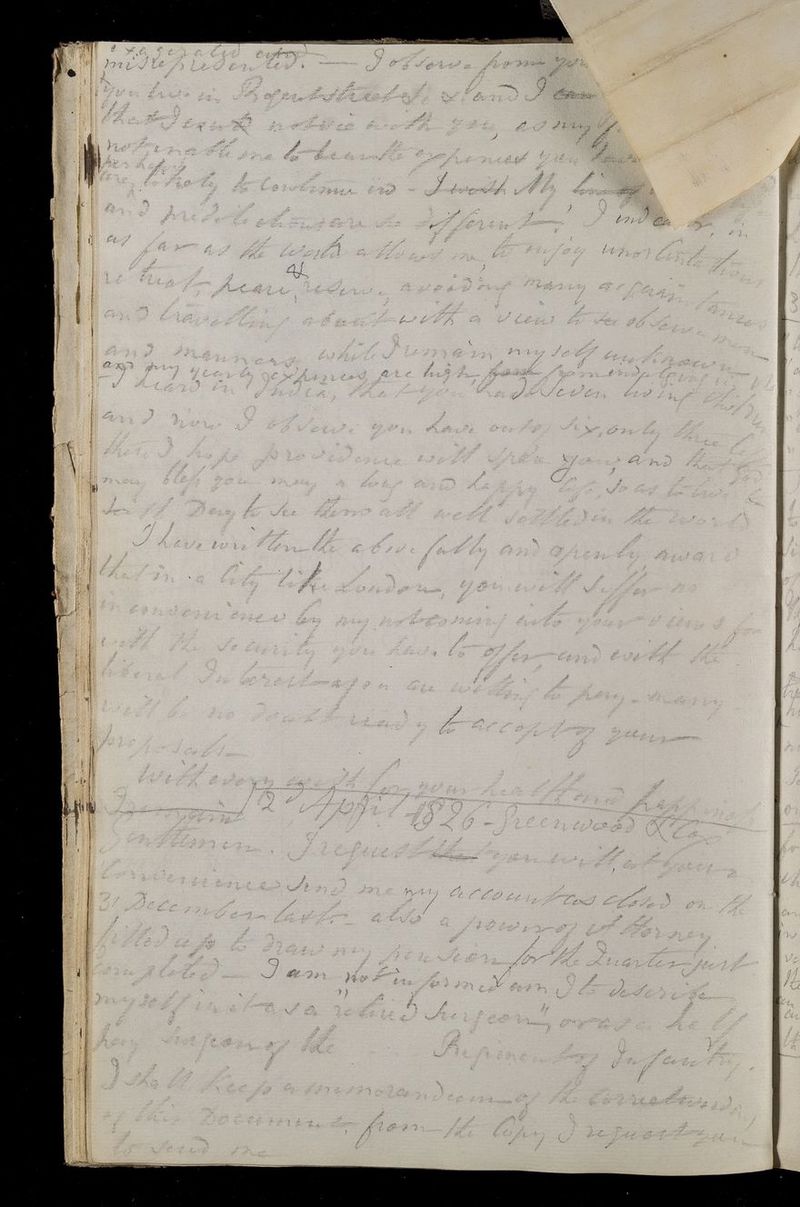 exagerated and
misrepresented. — I observe from you
you live in Regent street No X, and I can
that I could not vie with you, as my
not enable me to bear the expences you have
perhaps
are, likely to continue in - I wish My line of
and predilections are so different! I endeavor, in
as far as the world allows me, to enjoy unostentatious
retreat, peace, & reserve, avoiding many acquaintances
and travelling about with a view to see observe men
and manners, while I remain myself unknown
and my yearly expences are high, from from indulging
I heard in India, that you had seven living children
and now I observe you have out of six, only three left
these I hope providence will spare you, and that God
may bless you may a long and happy life, so as to live
to see them all well settled in the world
I have written the above fully and openly, aware
that in a City like London, you will suffer no
inconvenience by my not coming into your views for
with the security you have to offer, and with the
liberal Interest you are willing to pay - many
will be no doubt ready to accept of your
proposals -
With every wish for your health and happiness
I remain 12d April 1826 - Greenwood & Cox
Gentlemen. I request that you will, at your
convenience send me my account as closed on the
31 December last - also a power of Attorney
filled up to draw my pension for the Quarter just
completed - I am not informed am I to describe
myself in it as a "retired Surgeon", or as a half
pay Surgeon of the Regiment of Infantry.
I shall keep a memorandum of the correct wording
of this Document, from the Copy I request you
to send me